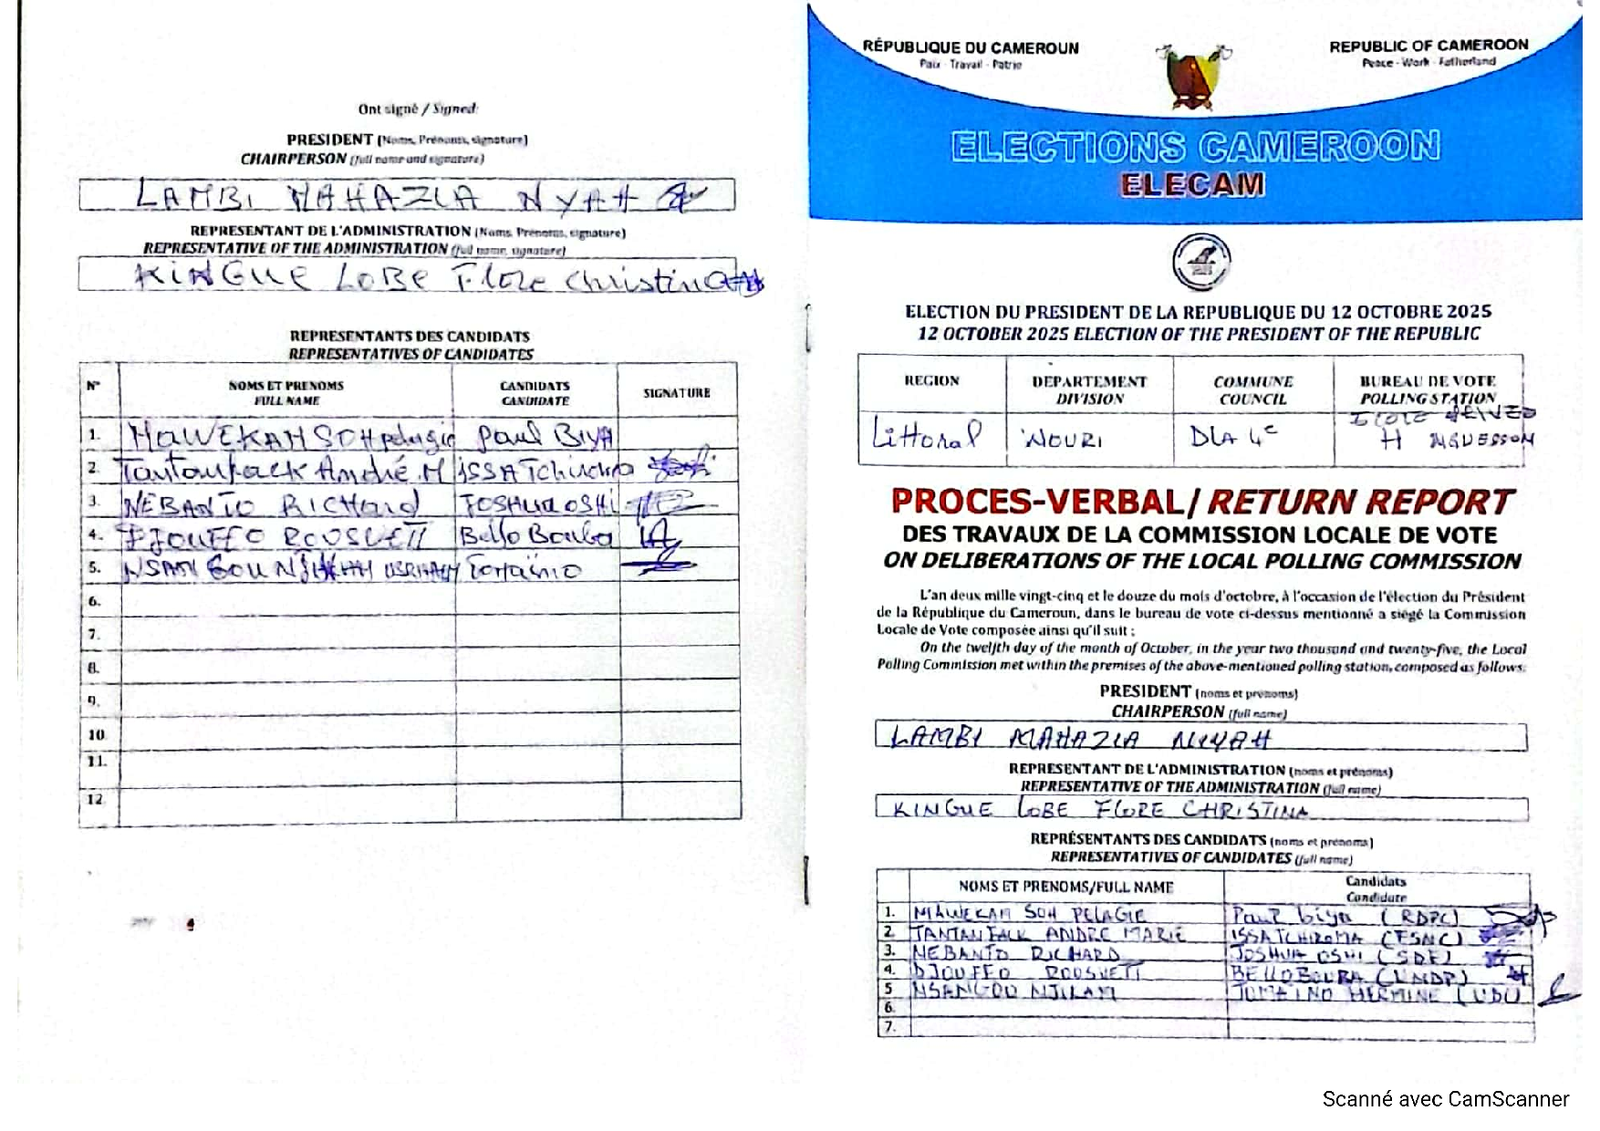 Ont signé / Signed:
PRESIDENT (Noms, Prénoms, signature)
CHAIRPERSON (full name and signature)
LAMBI MAHAZIA NYAH
REPRESENTANT DE L'ADMINISTRATION (Noms, Prénoms, signature)
REPRESENTATIVE OF THE ADMINISTRATION (full name, signature)
KINGUE LOBE Flore Christina
REPRESENTANTS DES CANDIDATS
REPRESENTATIVES OF CANDIDATES
N° NOMS ET PRENOMS FULL NAME CANDIDATS CANDIDATE SIGNATURE
1. MAWEKAM SOH pelagie Paul BIYA
2. André M ISSA Tchiroma
3. NEBANTO RICHard JOSHUA OSHI
4. DJOUFFO ROUSVETT Bello Bouba
5. NSANGOU
6.
7.
8.
9.
10.
11.
12.
4
RÉPUBLIQUE DU CAMEROUN
Paix - Travail - Patrie
REPUBLIC OF CAMEROON
Peace - Work - Fatherland
ELECTIONS CAMEROON
ELECAM
ELECTION DU PRESIDENT DE LA REPUBLIQUE DU 12 OCTOBRE 2025
12 OCTOBER 2025 ELECTION OF THE PRESIDENT OF THE REPUBLIC
REGION DEPARTEMENT DIVISION COMMUNE COUNCIL BUREAU DE VOTE POLLING STATION
Littoral WOURI DLA 4e ECOLE H
PROCES-VERBAL/ RETURN REPORT
DES TRAVAUX DE LA COMMISSION LOCALE DE VOTE
ON DELIBERATIONS OF THE LOCAL POLLING COMMISSION
L'an deux mille vingt-cinq et le douze du mois d'octobre, à l'occasion de l'élection du Président
de la République du Cameroun, dans le bureau de vote ci-dessus mentionné a siégé la Commission
Locale de Vote composée ainsi qu'il suit :
On the twelfth day of the month of October, in the year two thousand and twenty-five, the Local
Polling Commission met within the premises of the above-mentioned polling station, composed as follows:
PRESIDENT (noms et prenoms)
CHAIRPERSON (full name)
LAMBI MAHAZIA NYAH
REPRESENTANT DE L'ADMINISTRATION (noms et prénoms)
REPRESENTATIVE OF THE ADMINISTRATION (full name)
KINGUE LOBE FLORE CHRISTINA
REPRÉSENTANTS DES CANDIDATS (noms et prenoms)
REPRESENTATIVES OF CANDIDATES (full name)
NOMS ET PRENOMS/FULL NAME Candidats Candidate
1. MAWEKAM SOH PELAGIE Paul biya (RDPC)
2. ANDRE MARIE ISSA TCHIROMA (FSNC)
3. NEBANTO RICHARD JOSHUA OSHI (SDF)
4. DJOUFFO ROUSVETT BELLO BOUBA (UNDP)
5 NSANGOU NJIKAM TOMAINO HERMINE (UDU
6.
7.
Scanné avec CamScanner